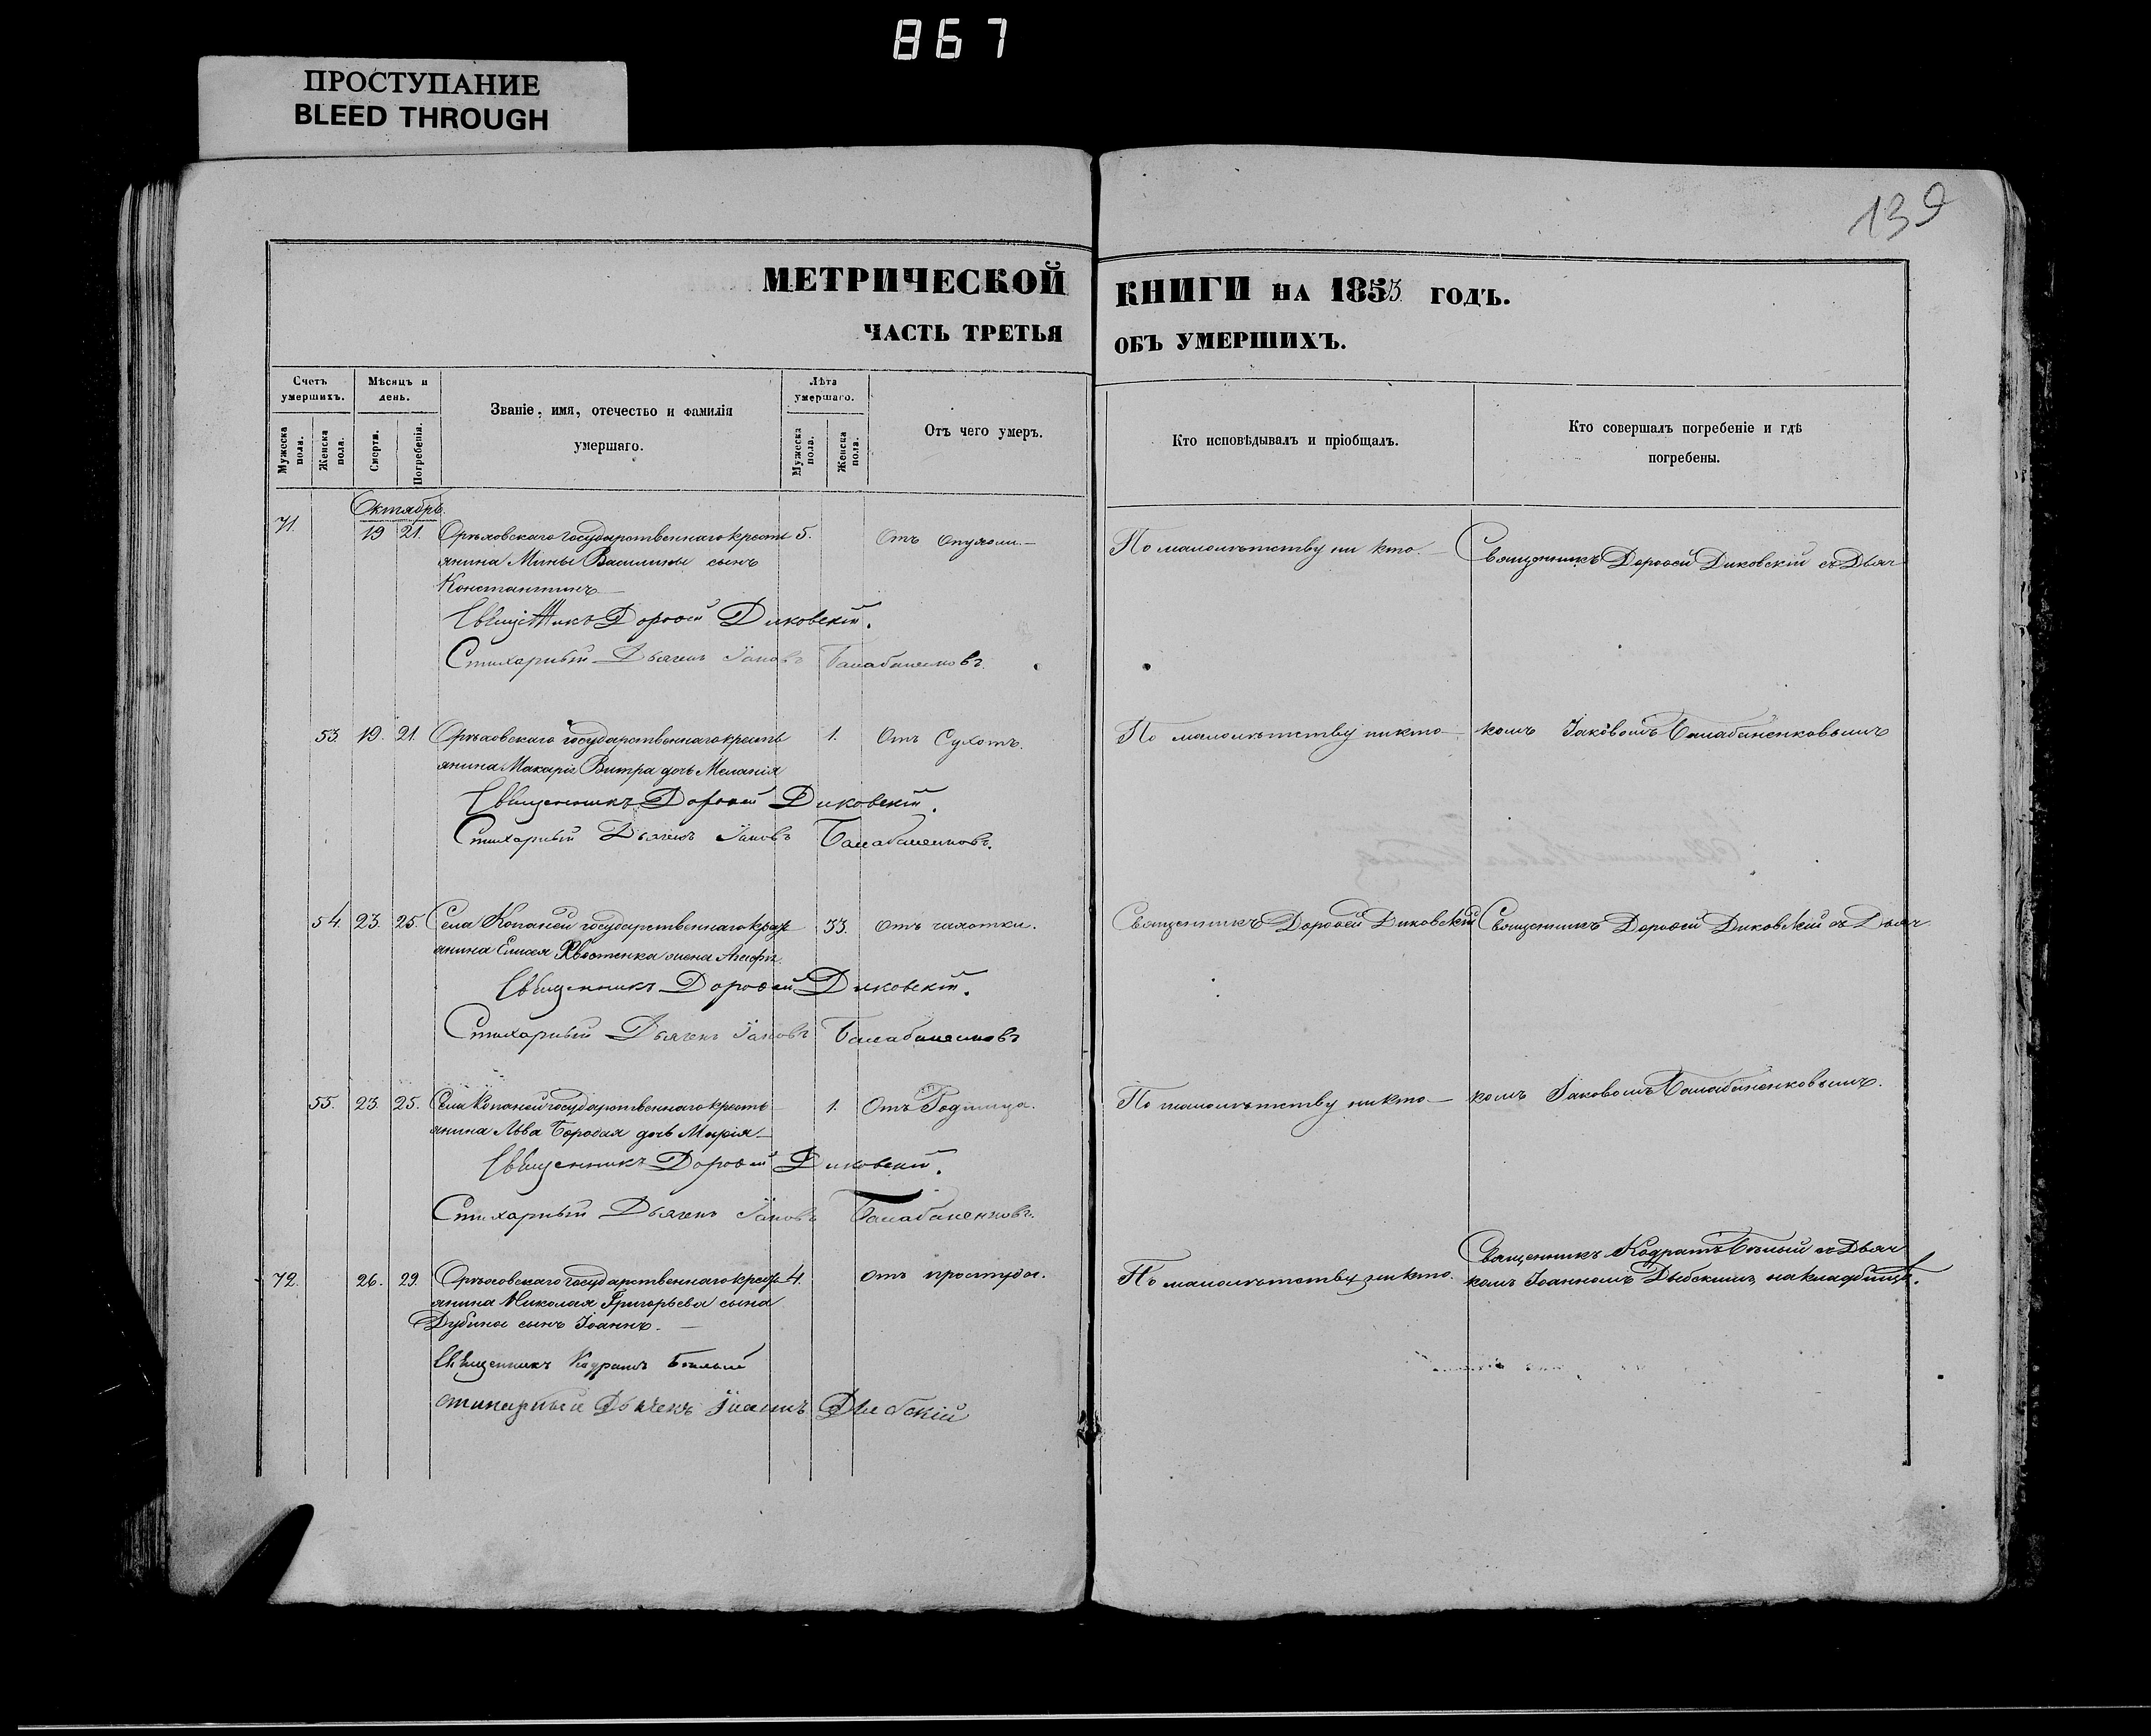 867
ПРОСТУПАНИЕ
BLEED THROUGH
139
МЕТРИЧЕСКОЙ КНИГИ НА 1853 ГОДЪ.
ЧАСТЬ ТРЕТЬЯ ОБЪ УМЕРШИХЪ.
Счетъ умершихъ.
Мужеска пола.
Женска пола.
Мѣсяцъ и день.
Смерти.
Погребенія.
Званіе, имя, отечество и фамилія умершаго.
Лѣта умершаго.
Мужеска пола.
Женска пола.
Отъ чего умеръ.
Кто исповѣдывалъ и пріобщалъ.
Кто совершалъ погребеніе и гдѣ погребены.
Октябрь.
71. 19 21. Орѣховскаго государственнаго кресть 5. Отъ опухоли. По малолѣтству ни кто. Священникъ Дорофей Диковскій съ Дьяч
янина Мины Василины сынъ
Константинъ
Священникъ Дорофей Диковскій.
Стихарный Дьячекъ Іаковъ Балабаненковъ.
53. 19. 21. Орѣховскаго государственнаго кресть 1. Отъ Сухотъ. По малолѣтству никто комъ Іаковомъ Балабаненковымъ
янина Макарія Витра дочь Меланія
Священникъ Дорофей Диковскій.
Стихарный Дьячекъ Іаковъ Балабаненковъ.
54. 23. 25. Села Копаней государственнаго крест 33. Отъ чахотки. Священникъ Дорофей Диковскій Священникъ Дорофей Диковскій съ Дьяч
янина Елисея Хвостенка жена
Священникъ Дорофей Диковскій.
Стихарный Дьячекъ Іаковъ Балабаненковъ
55. 23. 25. Села Копаней государственнаго кресть 1. Отъ Родимца. По малолѣтству никто комъ Іаковомъ Балабаненковымъ.
янина Льва Бородая дочь Марія
Священникъ Дорофей Диковскій.
Стихарный Дьячекъ Іаковъ Балабаненковъ.
72. 26. 29. Орѣховскаго государственнаго крест 4. Отъ простуды. По малолѣтству никто. Священникъ Кодратъ Бѣлый съ Дьяч
комъ Іоанномъ Дибскимъ на кладбищѣ.
янина Николая Григорьева сына
Дубина сынъ Іоаннъ.
Священникъ Кодратъ Бѣлый
Стихарный Дьячекъ Іоаннъ Дибскій